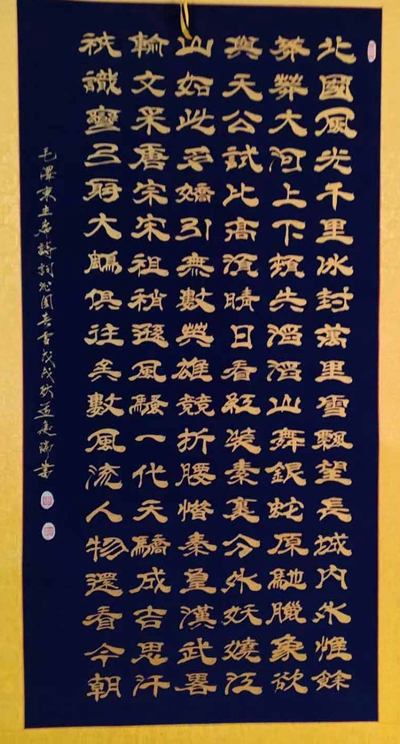 北國風光千里冰封萬里雪飄望長城内外惟餘
莽莽大河上下頓失滔滔山舞銀蛇原馳臘象欲
與天公試比高須晴日看紅裝素裹分外妖嬈江
山如此多嬌引無數英雄競折腰惜秦皇漢武畧
輸文采唐宗宋祖稍遜風騷一代天驕成吉思汗
祇識彎弓射大鵰俱往矣數風流人物還看今朝
毛澤東主席詩詞沁園春雪戊戌秋